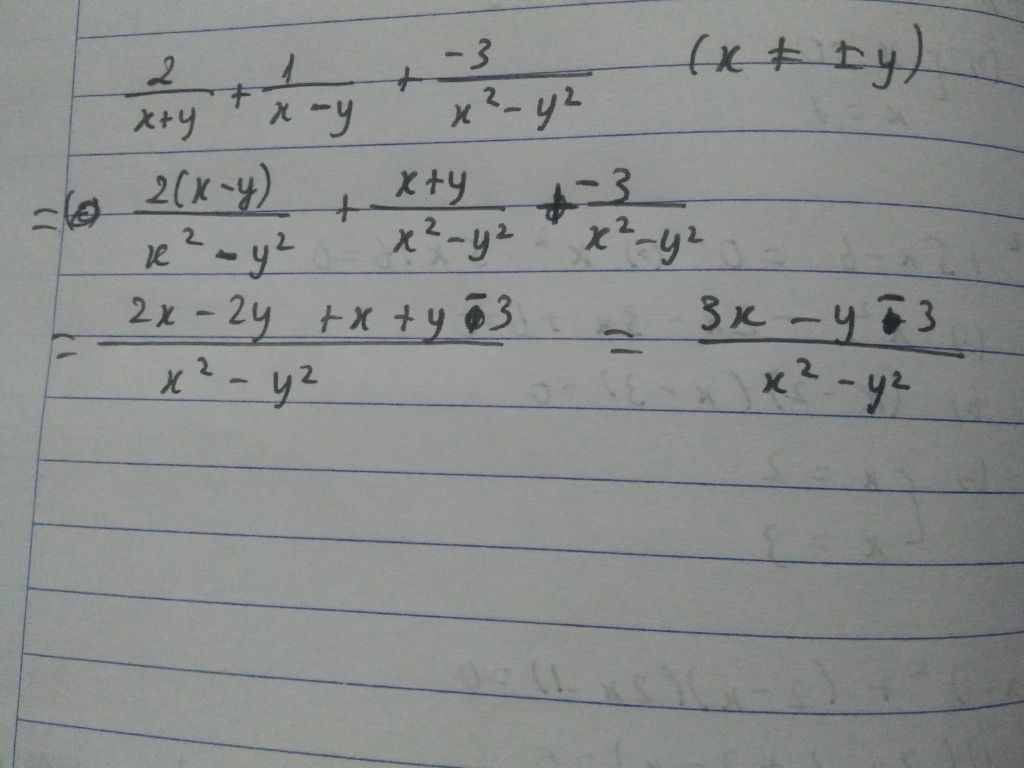 2/(x+y) + 1/(x-y) + -3/(x²-y²) (x ≠ ±y)
= 2(x-y)/(x²-y²) + (x+y)/(x²-y²) + -3/(x²-y²)
= (2x-2y+x+y-3)/(x²-y²) = (3x-y-3)/(x²-y²)